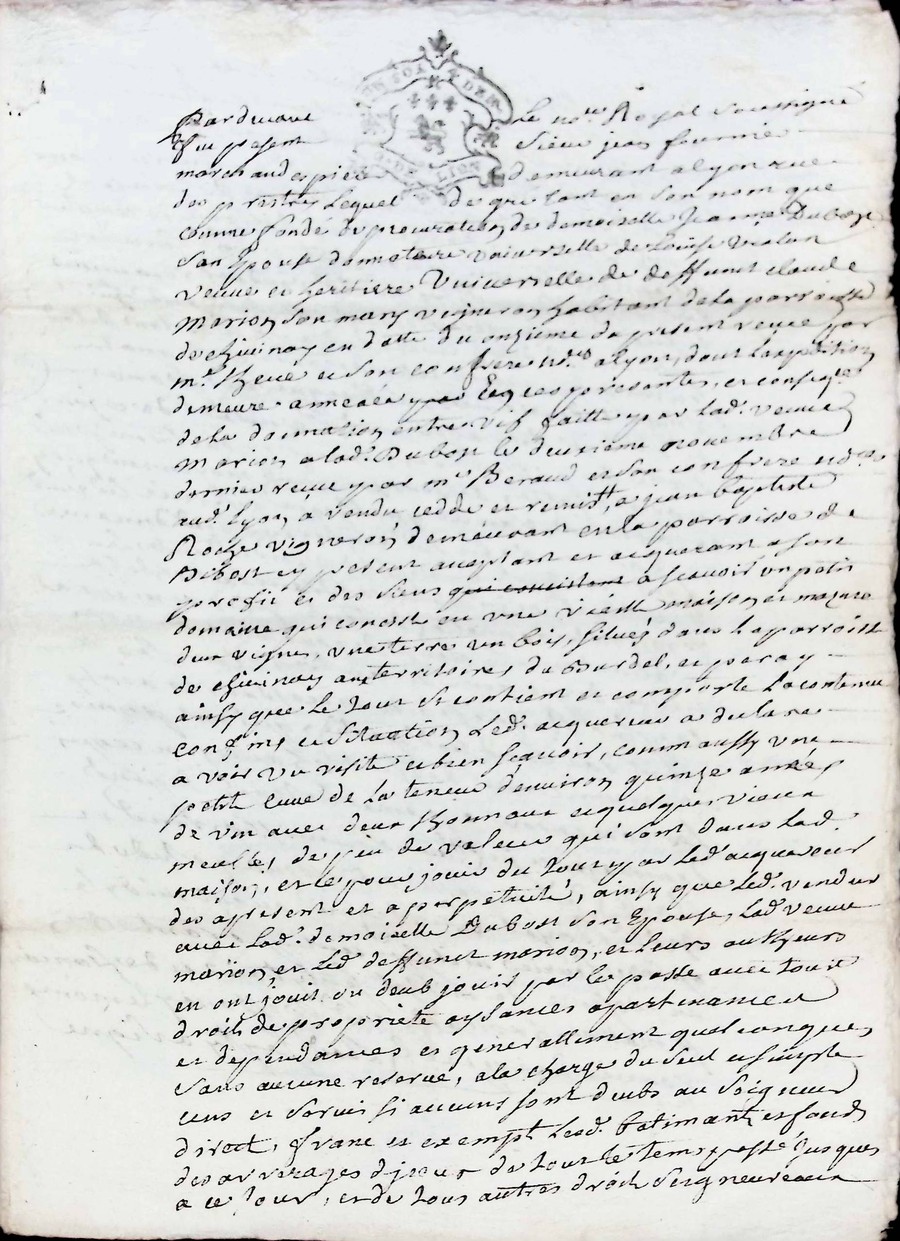 Pardevant le no.re Royal soussigné
fut present sieur jean fournier
marchand epicier demeurant a lyon rue
des prestres lequel de gré tant en son nom que
comme fondé de procuration de demoiselle Jeanne Dubost
son Epouse donnataire universelle de Louise
veuve et heritiere Universelle de deffunct claude
marion son mary vigneron habitant de la parroisse
de chivinay en datte du onzieme du present reçue par
m.e et son confrere no.res a lyon, dont l'expedition
demeure annexée par ces presentes, et conseq.ce
de la donnation entre vif faitte par lad. veuve
marion a lad. Dubost le deuxieme novembre
dernier reçue par m.e Beraud et son confrere no.res
aud. lyon, a vendu cedde et remist, a jean baptiste
vigneron demeurant en la parroisse de
Bibost cy present acceptant et acquerant a son
profit et des siens qui consistent a scavoir un petit
domaine qui consiste en une vieille maison et mazure
deux vignes, une terre un bois, situés dans la parroisse
de chivinay au territoires du Burdel, et
ainsy que le tout se contient et comporte la contenue
confins et situation led. acquereur a declaré
avoir vu visité et bien scavoir, comm'aussy une
petit cuve de la teneur denviron quinze anées
de vin avec deux tonnaux et quelques vieux
meubles de peu de valeur qui sont dans lad.
maison, et le pour jouir du tout par led. acquereur
des apresent et a perpetuité, ainsy que led. vendeur
avec lad. demoiselle Dubost son Epouse, lad. veuve
marion, et led. deffunct marion, et leurs autheurs
en ont jouit ou deub jouir par le passé avec touts
droits de propriete aysances apartenances
et dependances et generallement quelconques
sans aucune reserve, a la charge du seul et simple
cens et servis si aucuns sont deubs au seigneur
direct, franc et exempt lesd. batimants et fonds
des arrerages d'iceux de tout le tems passé jusques
a ce jour, et de tous autres droits seigneureaux